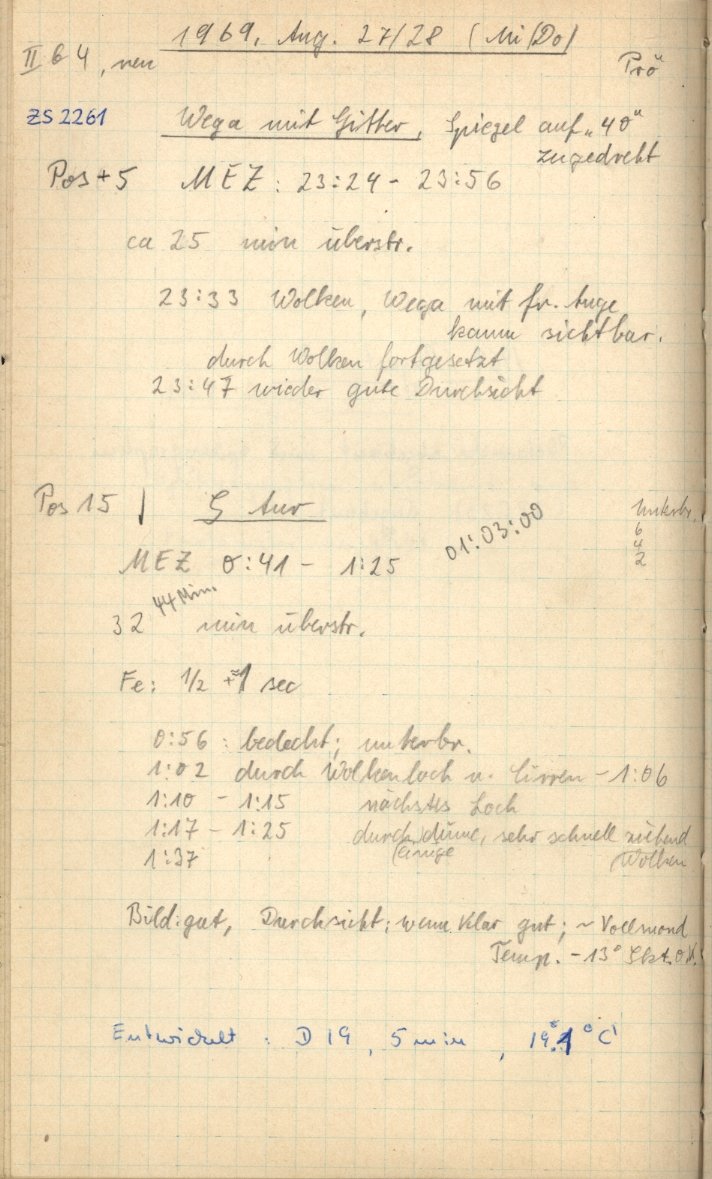 1969, Aug. 27/28 (Mi/Do)
II 64, neu
Prö
ZS 2261
Wega mit Gitter, Spiegel auf „40“
zugedreht
Pos + 5 MEZ: 23:24 - 23:56
ca 25 min überstr.
23:33 Wolken, Wega mit fr. Auge
kaum sichtbar.
durch Wolken fortgesetzt
23:47 wieder gute Durchsicht
Pos 15 ζ Aur
01:03:00
Unterbr.
6
4
2
MEZ 0:41 - 1:25
44 Min.
32 min überstr.
Fe: 1/2 1 sec
0:56 : bedeckt; unterbr.
1:02 durch Wolkenloch u. Cirren - 1:06
1:10 - 1:15 nächstes Loch
1:17 - 1:25 durch dünne, sehr schnell ziehend
(einige Wolken
1:37
Bild: gut, Durchsicht: wenn klar gut; ~ Vollmond
Temp. - 13°
Entwickelt : D 19, 5 min, 19.1 °C